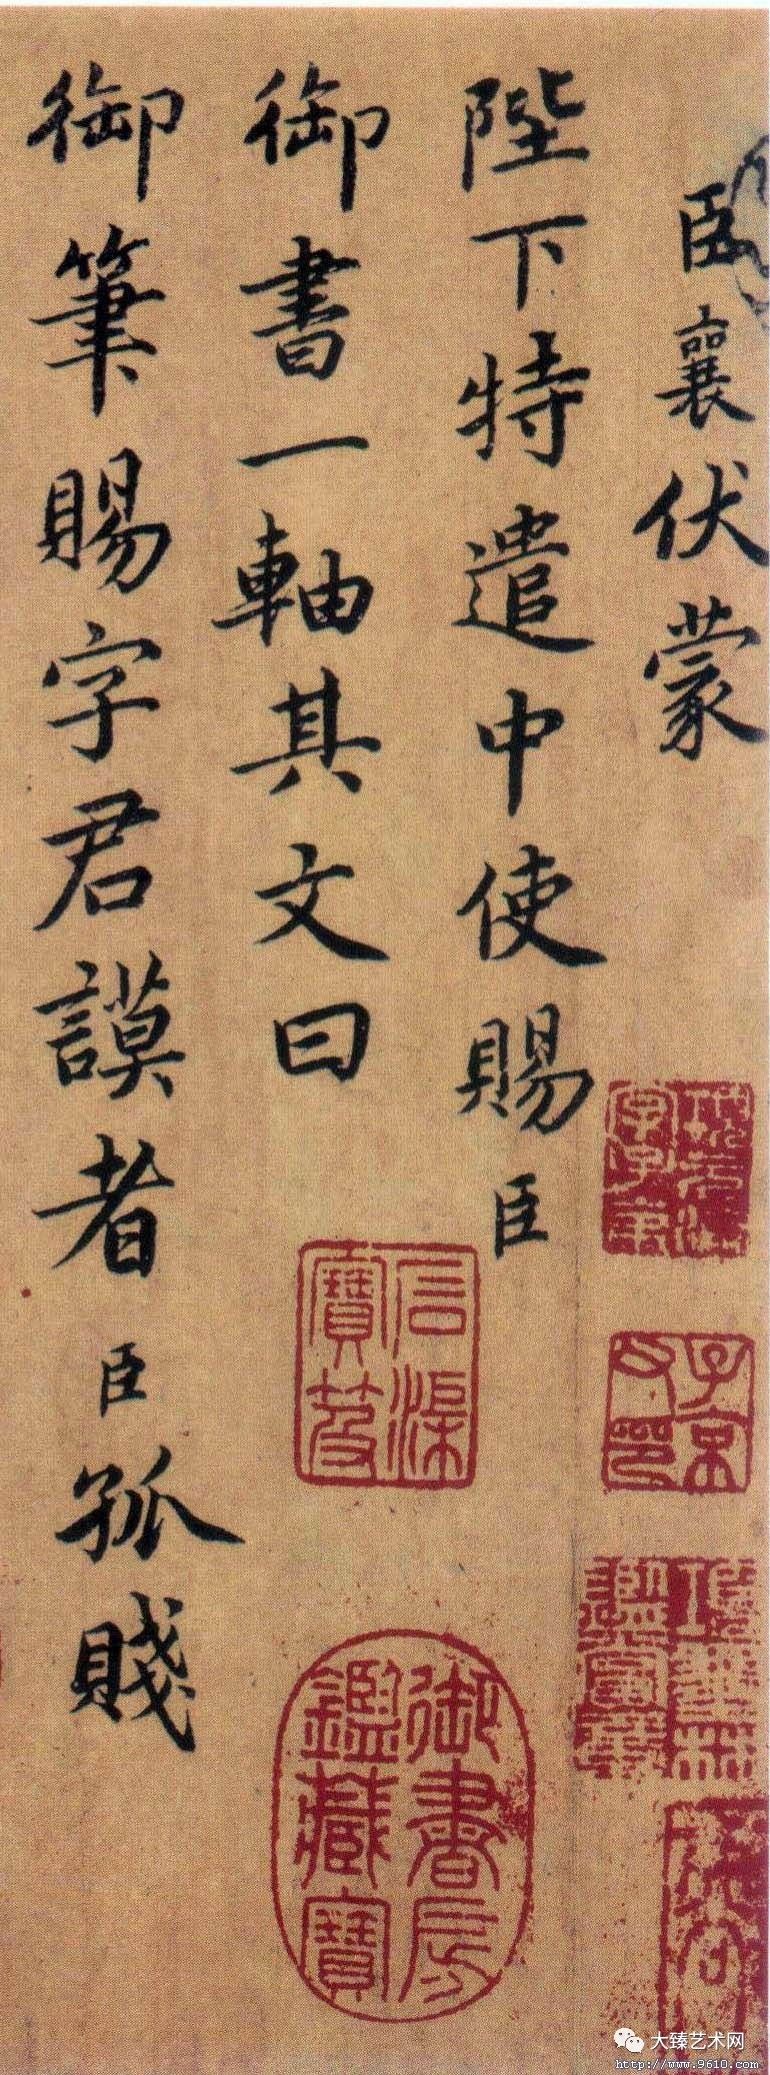 臣襄伏蒙
陛下特遣中使賜臣
御書一軸其文曰
御筆賜字君謨者臣孤賤
子京父印
御書房鑑藏寶
大臻艺术网
http://www.9610.com